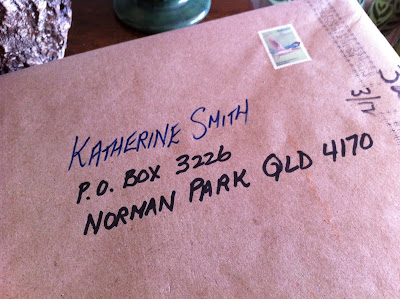 KATHERINE SMITH
P.O. BOX 3226
NORMAN PARK QLD 4170
3/12